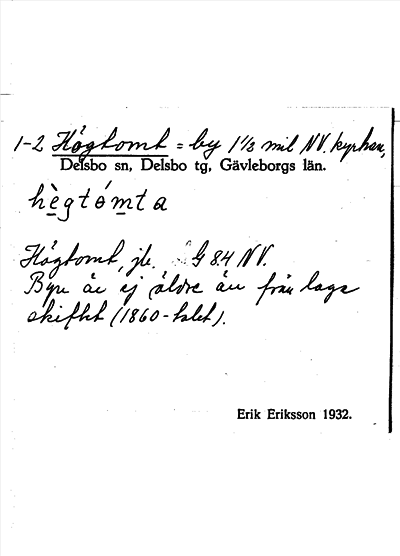 1-2 Högtomt = by 1 1/3 mil NV. kyrkan,
Delsbo sn, Delsbo tg, Gävleborgs län.
hègtómta
Högtomt, jb. G 84 NV.
Byn är ej äldre än från laga
skiftet (1860-talet).
Erik Eriksson 1932.